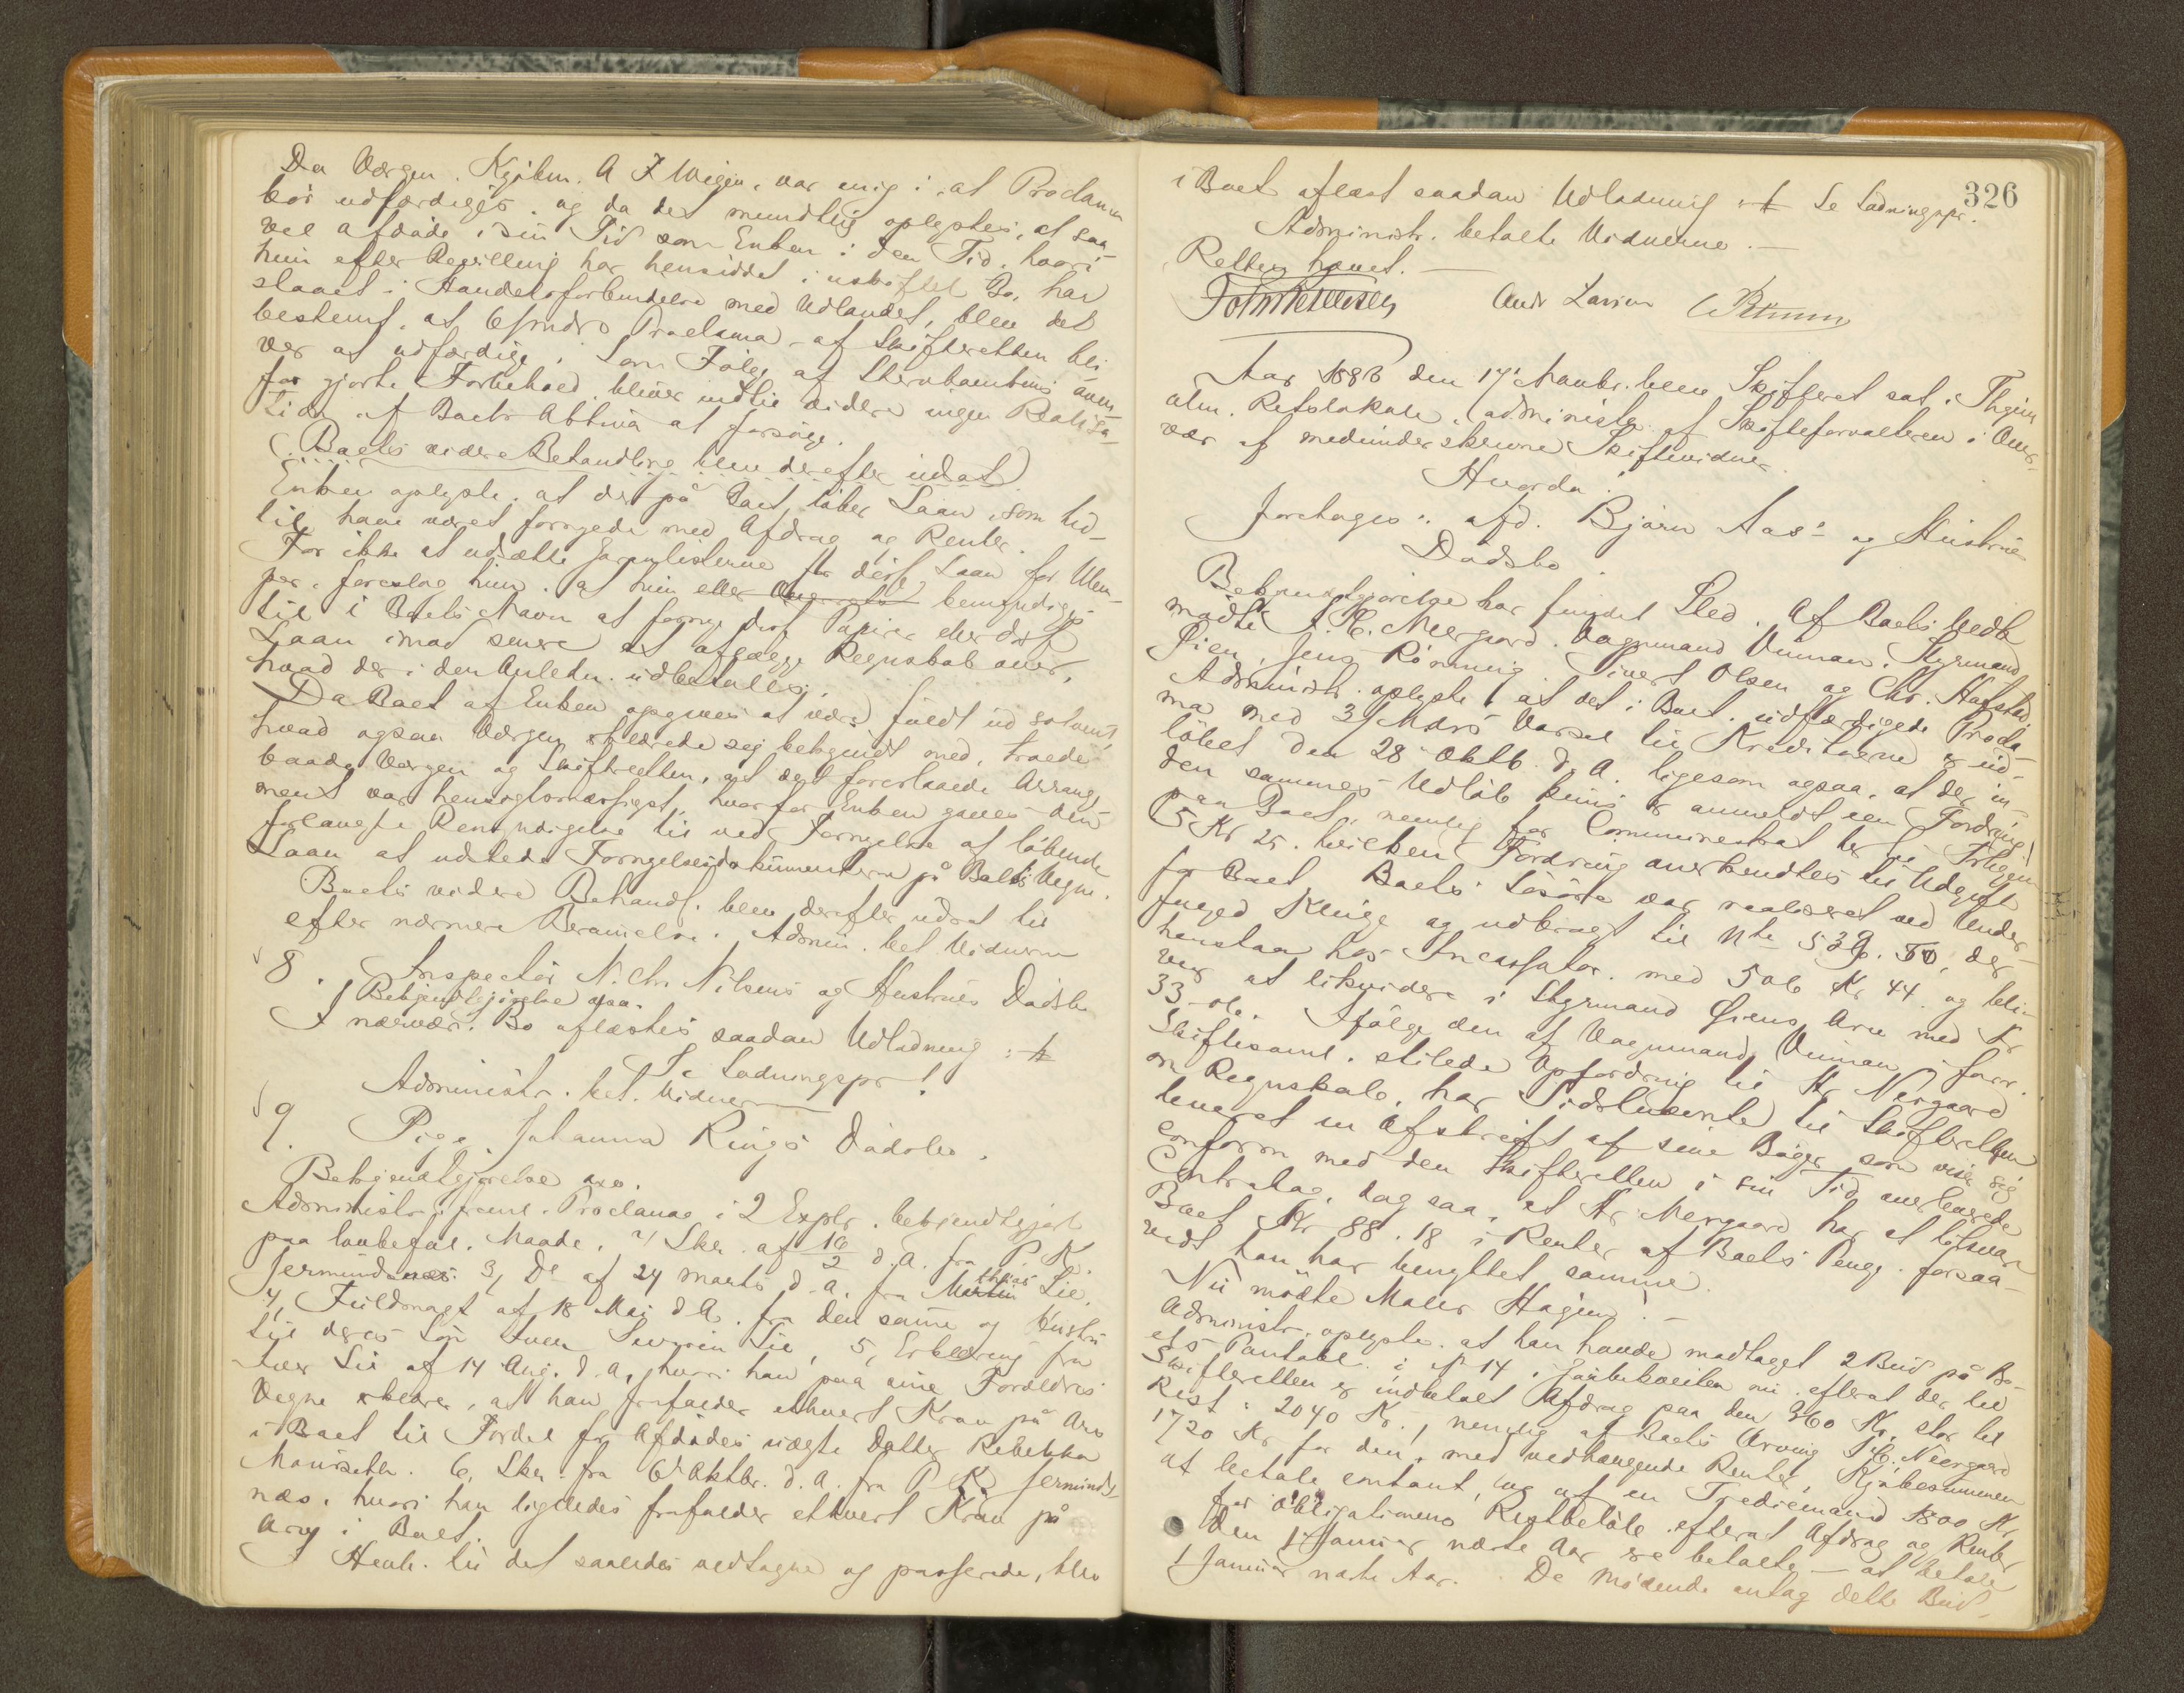 Da Værgen, Kjøbm. A J Wigen, var enig i, at Proclama
bør udfærdiges, og da det mundtlig oplystes, at saa-
vel afdøde i sin Tid som Enken i den Tid, hvori
hun efter Bevilling har hensiddet i uskiftet Bo, har
staaet i Handelsforbindelse med Udlandet, blev det
bestemt, at 6 Mndrs Proclama af Skifteretten bli-
ver at udfærdige. Som Følge af Enkens
for gjorte Forbehold bliver indtil videre ingen Realisa-
tion af Boets Aktiva at forsøge.
(Boets videre Behandling blev derefter udsat)
Enken oplyste, at der på Boet løber Laan, som tid-
lig have været fornyede med Afdrag og Renter.
For ikke at udsætte Garantisterne for disse Laan for Ulem-
per, foreslog hun, at hun bemyndiges
til i Boets Navn at forny disse Papirer eller disse
Laan imod senere at aflægge Regnskab over,
hvad der i den Anledn. udbetalles.
Da Boet af Enken opgives at være fuldt ud solvent,
hvad ogsaa Værgen erklærede sig bekjendt med, troede
baade Værgen og Skifteretten, at det foreslaaede Arrange-
ment var hensigtsmæssigst, hvorfor Enken gaves den
forlangte Bemyndigelse til ved Fornyelse af løbende
Laan at udstede Fornyelsesdokumenterne på Boets Vegne.
Boets videre Behandl. blev derefter udsat til
efter nærmere Berammelse. Admin. bet. Vidnerne
8. Inspectør N. Chr. Nilsens og Hustrues Dødsbo
Bekjendtgjørelse ogsaa.
I nærvær. Bo aflæstes saadan Udlodning :/:
Se Lodningspr!
Administr. bet. Vidner
9. Pige Johanna Rings Dødsbo.
Bekjendtgjørelse osv.
Administr. freml. Proclama i 2 Explr. bekjendtgjort
paa lovbefal. Maade, 2/ Skr. af 16/2 d. A. fra P. K.
Jermundsnæs 3/ Do af 24 Marts d. A. fra Mathias Lie,
4/ Fuldmagt af 18 Mai d A. fra den samme og Hustru
til deres Søn Iver Severin Lie, 5, Erklæring fra
Iver Lie af 14 Aug. d. A., hvori han paa sine Forældres
Vegne erklærer, at han frafalder ethvert Krav på Arv
i Boet til Fordel for Afdødes uægte Datter Rebekka
Mauseth. 6, Skr. fra 6 Oktbr. d. A. fra P. K. Jermunds-
næs, hvori han ligeledes frafalder ethvert Krav på
Arv i Boet.
Henh. til det saaledes vedtagne og passerede, blev
326
i Boet aflæst saadan Udlodning :/: Se Lodningspr.
Administr. betalte Vidnerne.
Retten hævet.
Ands Larsen
Aar 1886 den 17 Novbr. blev Skifteret sat i Thjem
alm. Retslokale, administr. af Skifteforvalteren i Over-
vær af medunderskrevne Skiftevidner.
Hvorda:
Foretoges: afd. Bjørn Aas's og Hustrues
Dødsbo.
Bekjendtgjørelse har fundet Sted. Af Boets Vedk.
mødte J. C. Meergaard, Vognmand Vinnan, Styrmand
Øien, Jens Rønning Sivert Olsen og Chr. Hafstad.
Administr. oplyste, at det i Boet udfærdigede Procla-
ma med 3 Mdrs Varsel til Kreditorerne er ud-
løbet den 28 Oktb. d. A. ligesom ogsaa, at der in-
den sammes Udløb kuns er anmeldt een Fordring
paa Boet, nemlig fra
5 Kr 25. hvilken Fordring anerkendtes til Udgift
for Boet. Boets Løsøre var realiseret ved Under-
foged Klüge og udbragt til Nto 539. 50, der
henstaa hos Incassator med 506 Kr 44 og bli-
ver at likvidere i Styrmand Øiens Arv med Kr
33-06. Ifølge den af Vognmand Vinnan i forr.
Skiftesaml. stilede Opfordring til Hr Neergaard
om Regnskab, har Sidstnævnte til Skifteretten
leveret en Afskrift af sine Bøger, som viser sig
conform med den Skifteretten i sin Tid overleverede
Contrabog, dog saa, at Hr Meergaard har at tilsvare
Boet Kr 88. 18 i Renter af Boets Penge, forsaa-
vidt han har benyttet samme.
Nu mødte Maler Hagen!
Administr. oplyste at han havde modtaget 2 Bud på Bo-
ets Pantobl. i № 14 i efterat der til
Skifteretten er indbetalt Afdrag paa den 360 Kr, stor til
Rest: 2040 Kr., nemlig af Boets Arving J. C. Neergaard
1720 Kr for den, med vedhængende Renter, Kjøbesummen
at betale contant, og af en Trediemand 1800 Kr,
for Obligationens Restbeløb, efterat Afdrag og Renter
den 1 Januar næste Aar ere betalte – at betale
1 Januar næste Aar. De mødende antog dette Bud